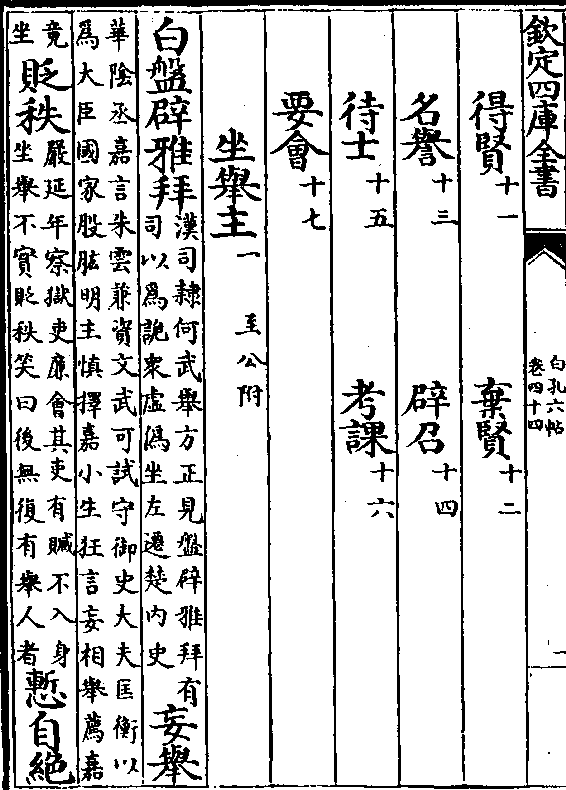 欽定四庫全書
白孔六帖
卷四十四
一
得賢十一 棄賢十二
名譽十三 辟召十四
待士十五 考課十六
要會十七
坐舉主一 至公附
白盤辟雅拜漢司隸何武舉方正見盤辟雅拜有
司以為詭衆虛偽坐左遷楚内史妄舉
華陰丞嘉言朱雲兼資文武可試守御史大夫匡衡以
為大臣國家股肱明主慎擇嘉小生狂言妄相舉薦嘉
竟
坐貶秩嚴延年察獄吏廉會其吏有贓不入身
坐舉不實貶秩笑曰後無復有舉人者慙自絕